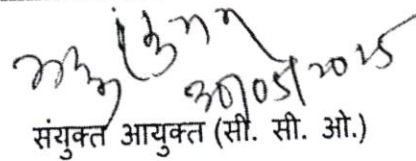 30/05/2025
संयुक्त आयुक्त (सी. सी. ओ.)